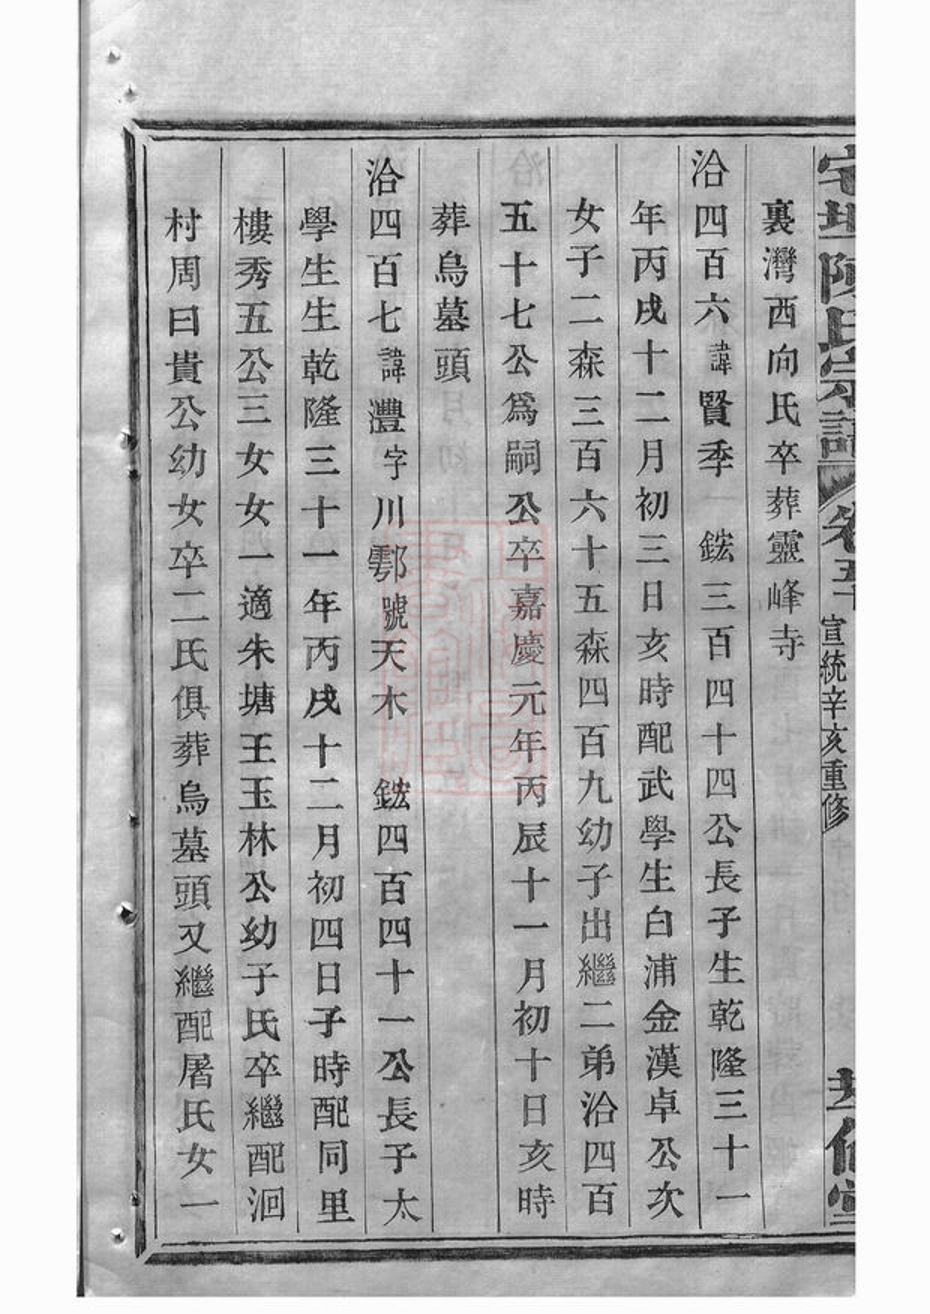 宅坦陳氏宗譜 卷五 宣統辛亥重修
裏灣西向氏卒葬靈峰寺
洽四百六諱賢季 鋐三百四十四公長子生乾隆三十一
年丙戌十二月初三日亥時配武學生白浦金漢卓公次
女子二森三百六十五森四百九幼子出繼二弟洽四百
五十七公爲嗣公卒嘉慶元年丙辰十一月初十日亥時
葬烏墓頭
洽四百七諱灃字川鄠號天木 鋐四百四十一公長子太
學生生乾隆三十一年丙戌十二月初四日子時配同里
樓秀五公三女女一適朱塘王玉林公幼子氏卒繼配洄
村周曰貴公幼女卒二氏俱葬烏墓頭又繼配屠氏女一